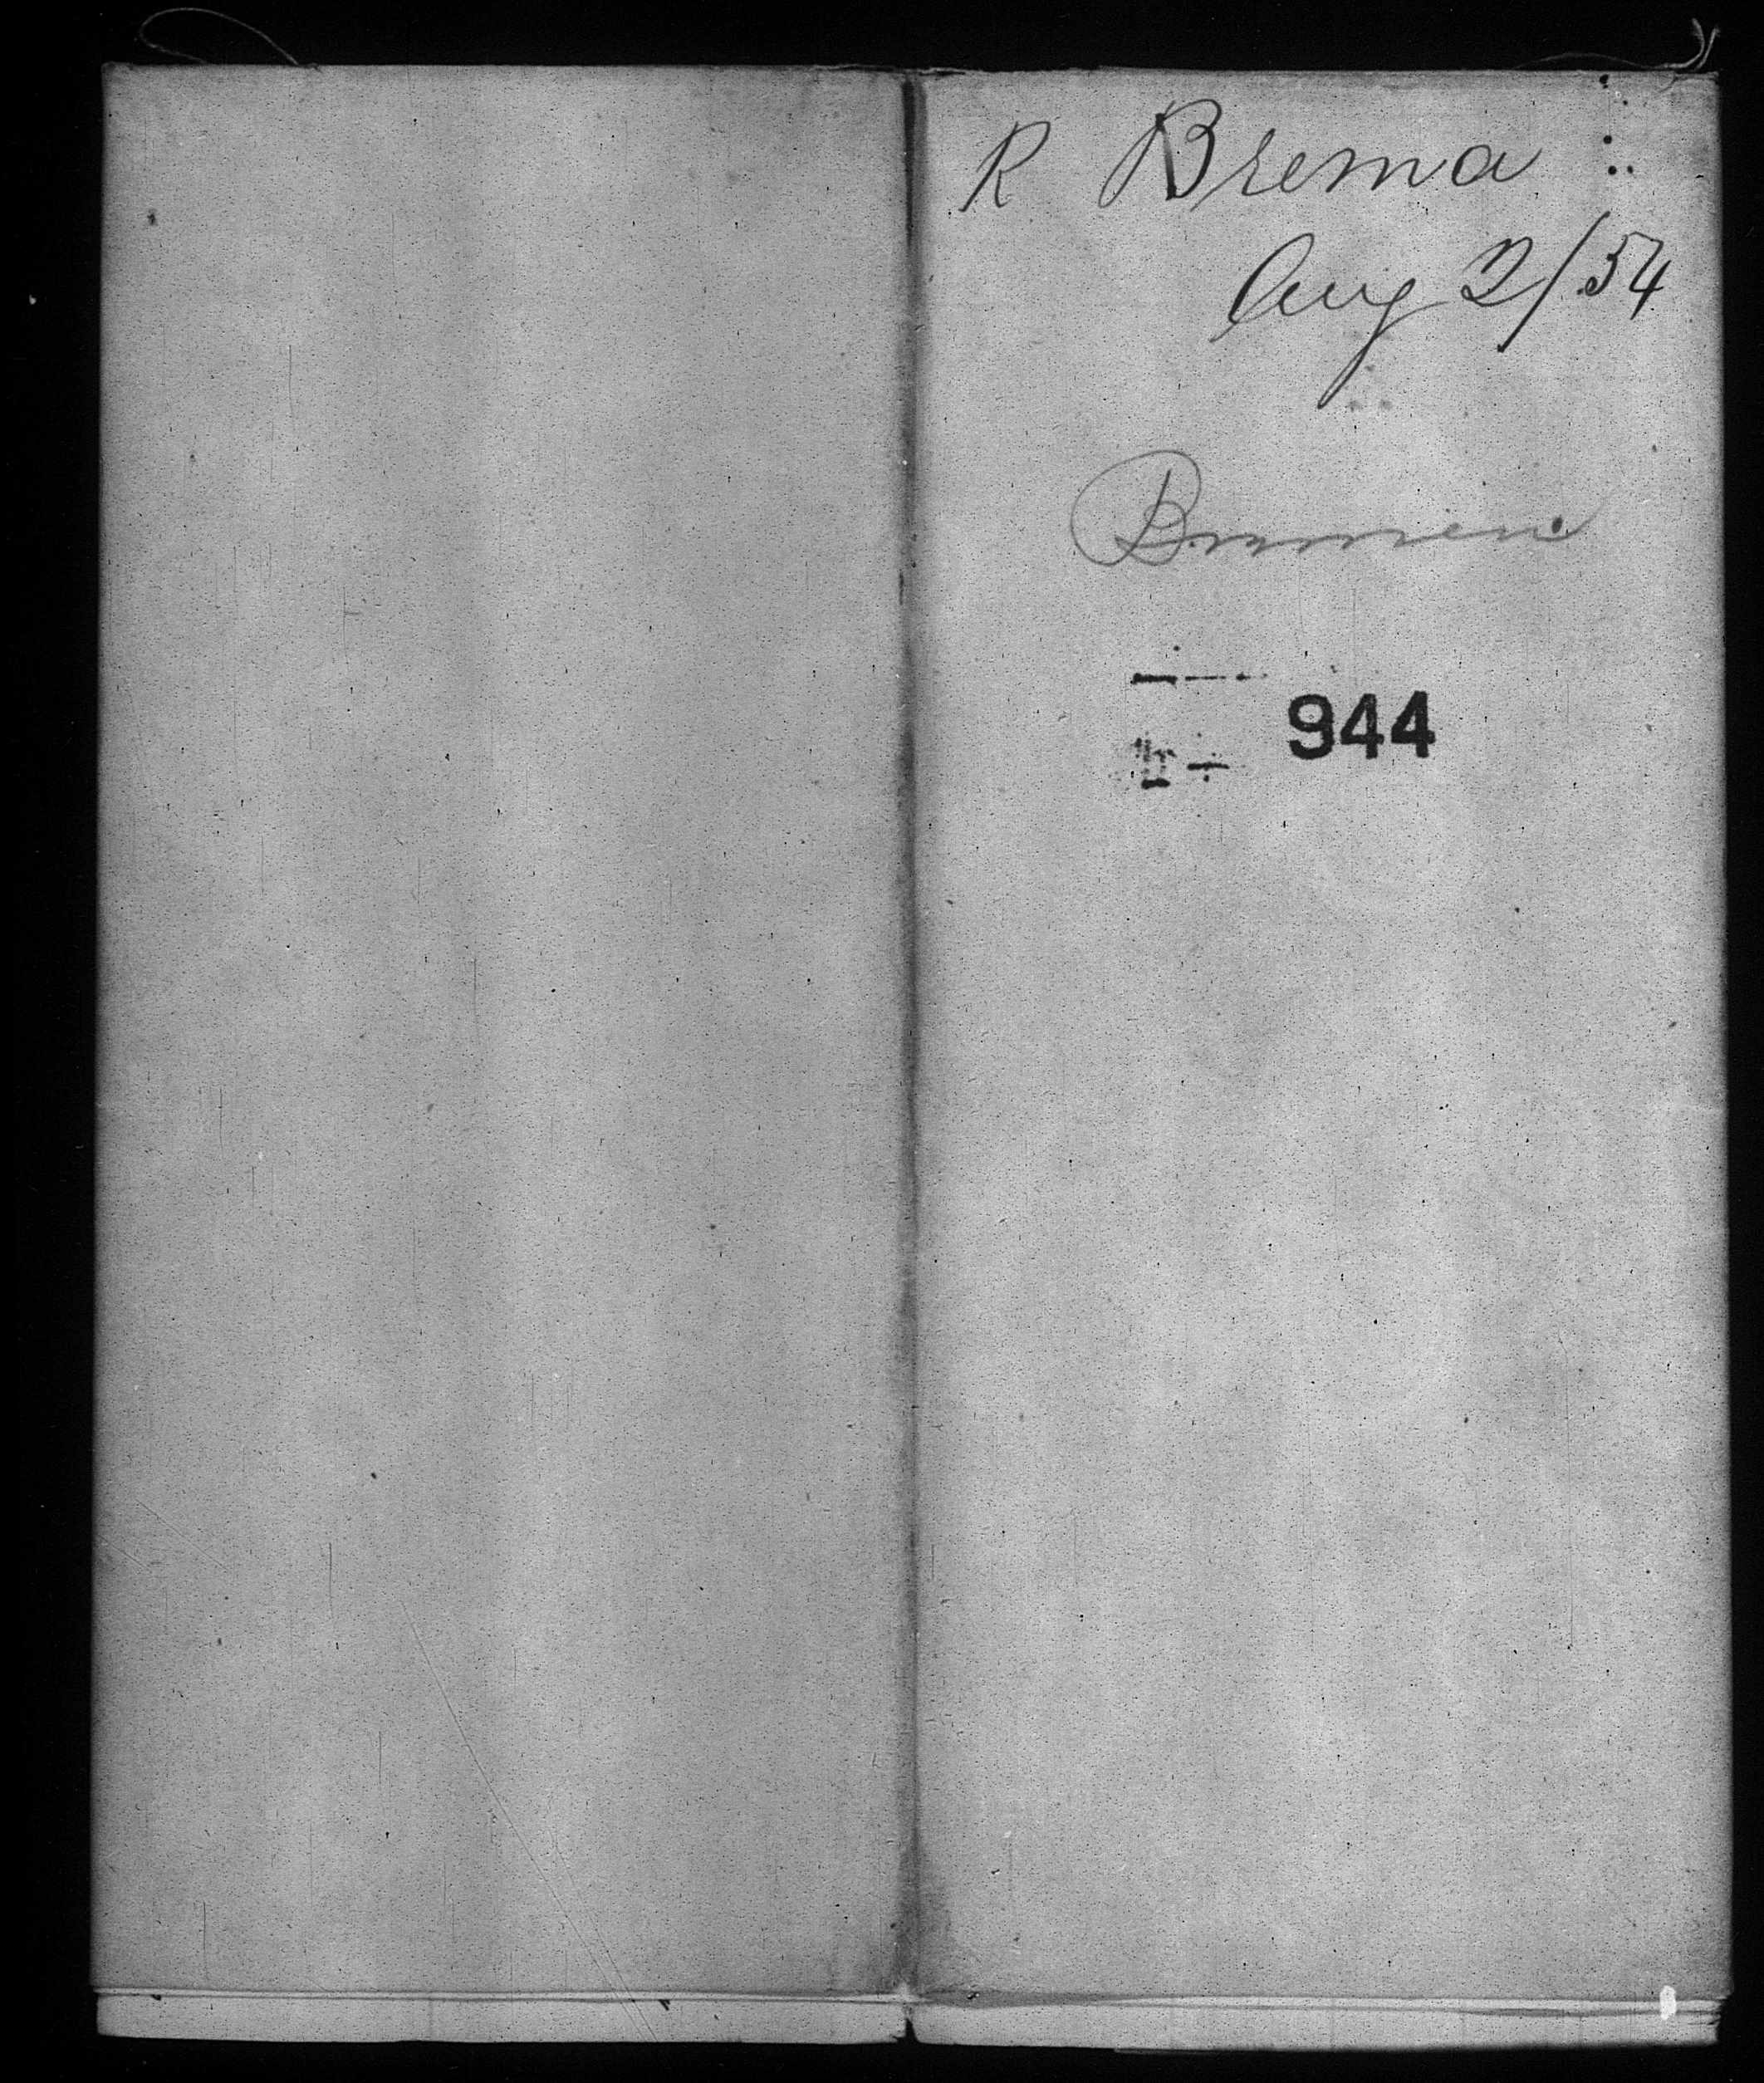 R Brema
Aug 2/54
Bremen
944